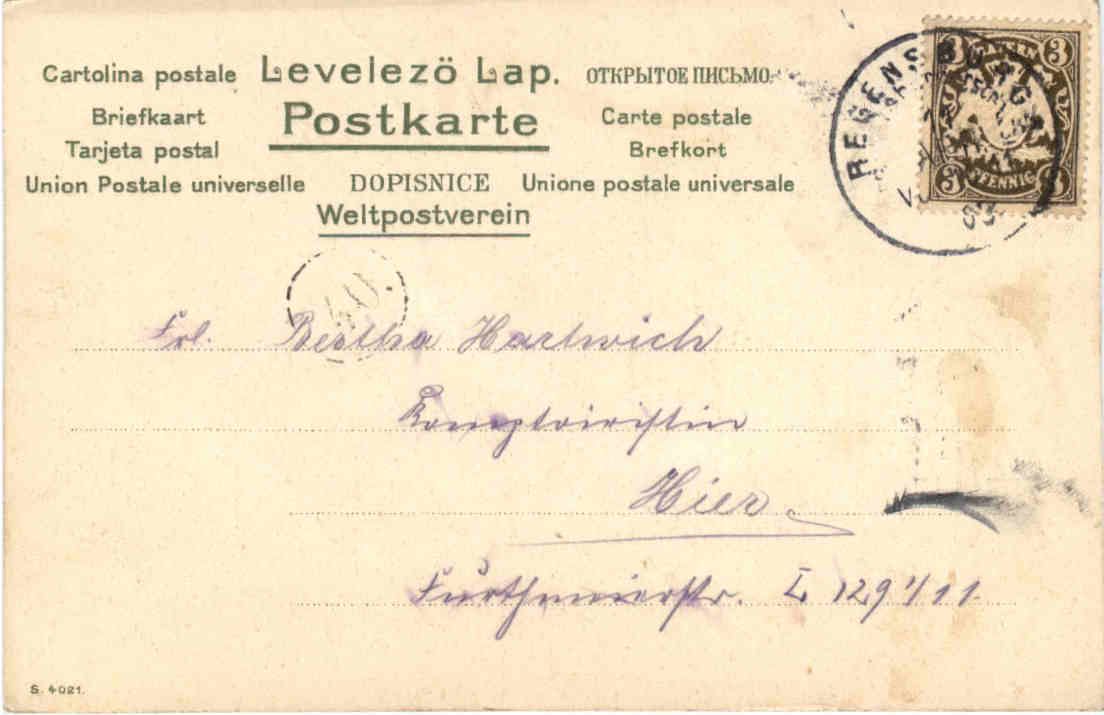 Cartolina postale Levelezö Lap. ОТКРЫТОЕ ПИСЬМО.
Briefkaart Postkarte Carte postale
Tarjeta postal Brefkort
Union Postale universelle DOPISNICE Unione postale universale
Weltpostverein
REGENSBURG
3 3
3 PFENNIG 3
40.
Frl. Bertha Hartwich
Komptoiristin
Hier
I 129 1/11.
S. 4021.